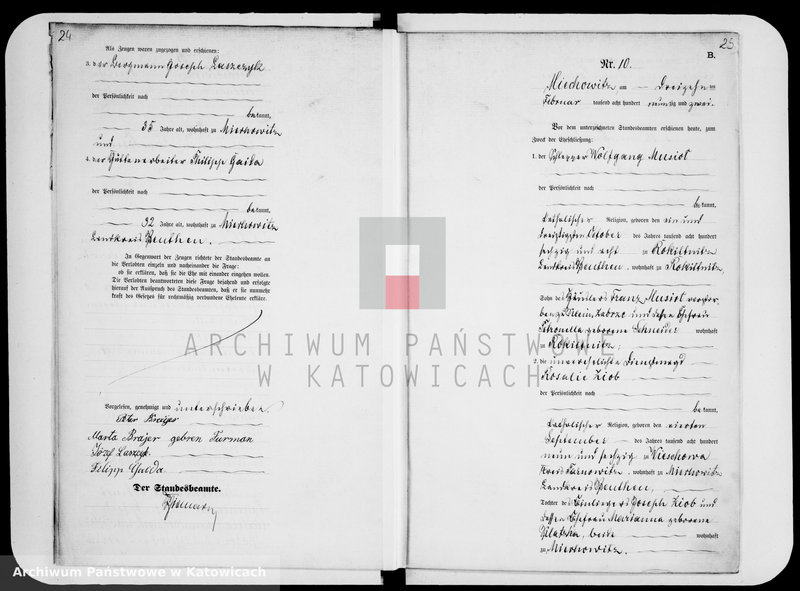 24
Als Zeugen waren zugezogen und erschienen:
3. der Bergmann Joseph Laszczyk
der Persönlichkeit nach
bekannt,
35 Jahre alt, wohnhaft zu Miechowitz
und
4. der Hüttenarbeiter Filipp Gaida
der Persönlichkeit nach
bekannt,
32 Jahre alt, wohnhaft zu Miechowitz
Landkreis Beuthen.
In Gegenwart der Zeugen richtete der Standesbeamte an
die Verlobten einzeln und nacheinander die Frage:
ob sie erklären, daß sie die Ehe mit einander eingehen wollen.
Die Verlobten beantworteten diese Frage bejahend und erfolgte
hierauf der Ausspruch des Standesbeamten, daß er sie nunmehr
kraft des Gesetzes für rechtmäßig verbundene Eheleute erkläre.
Vorgelesen, genehmigt und unterschrieben.
Marta Brajer gebren Furman
Józef
Filipp Gaida
Der Standesbeamte.
25
B.
Nr. 10.
Miechowitz am dreizehnten
Februar tausend acht hundert neunzig und zwei.
Vor dem unterzeichneten Standesbeamten erschienen heute, zum
Zweck der Eheschließung:
1. der Schlepper Wolfgang Musiol
der Persönlichkeit nach
bekannt,
katholischer Religion, geboren den ein und
dreißigsten Oktober des Jahres tausend acht hundert
sechzig und acht zu Rokittnitz
Landkreis Beuthen, wohnhaft zu Rokittnitz
Sohn des Häuslers Franz Musiol verstor-
ben zu Klein Zabrze und dessen Ehefrau
Petronella geborene Schneider wohnhaft
zu Rokittnitz;
2. die unverehelichte Dienstmagd
Rosalie Ziob
der Persönlichkeit nach
bekannt,
katholischer Religion, geboren den vierten
September des Jahres tausend acht hundert
neun und sechzig zu Wieschowa
Kreis Tarnowitz, wohnhaft zu Miechowitz
Landkreis Beuthen,
Tochter des Einliegers Joseph Ziob und
dessen Ehefrau Marianna geborene
beide wohnhaft
zu Miechowitz.
ARCHIWUM PAŃSTWOWE
W KATOWICACH
Archiwum Państwowe w Katowicach